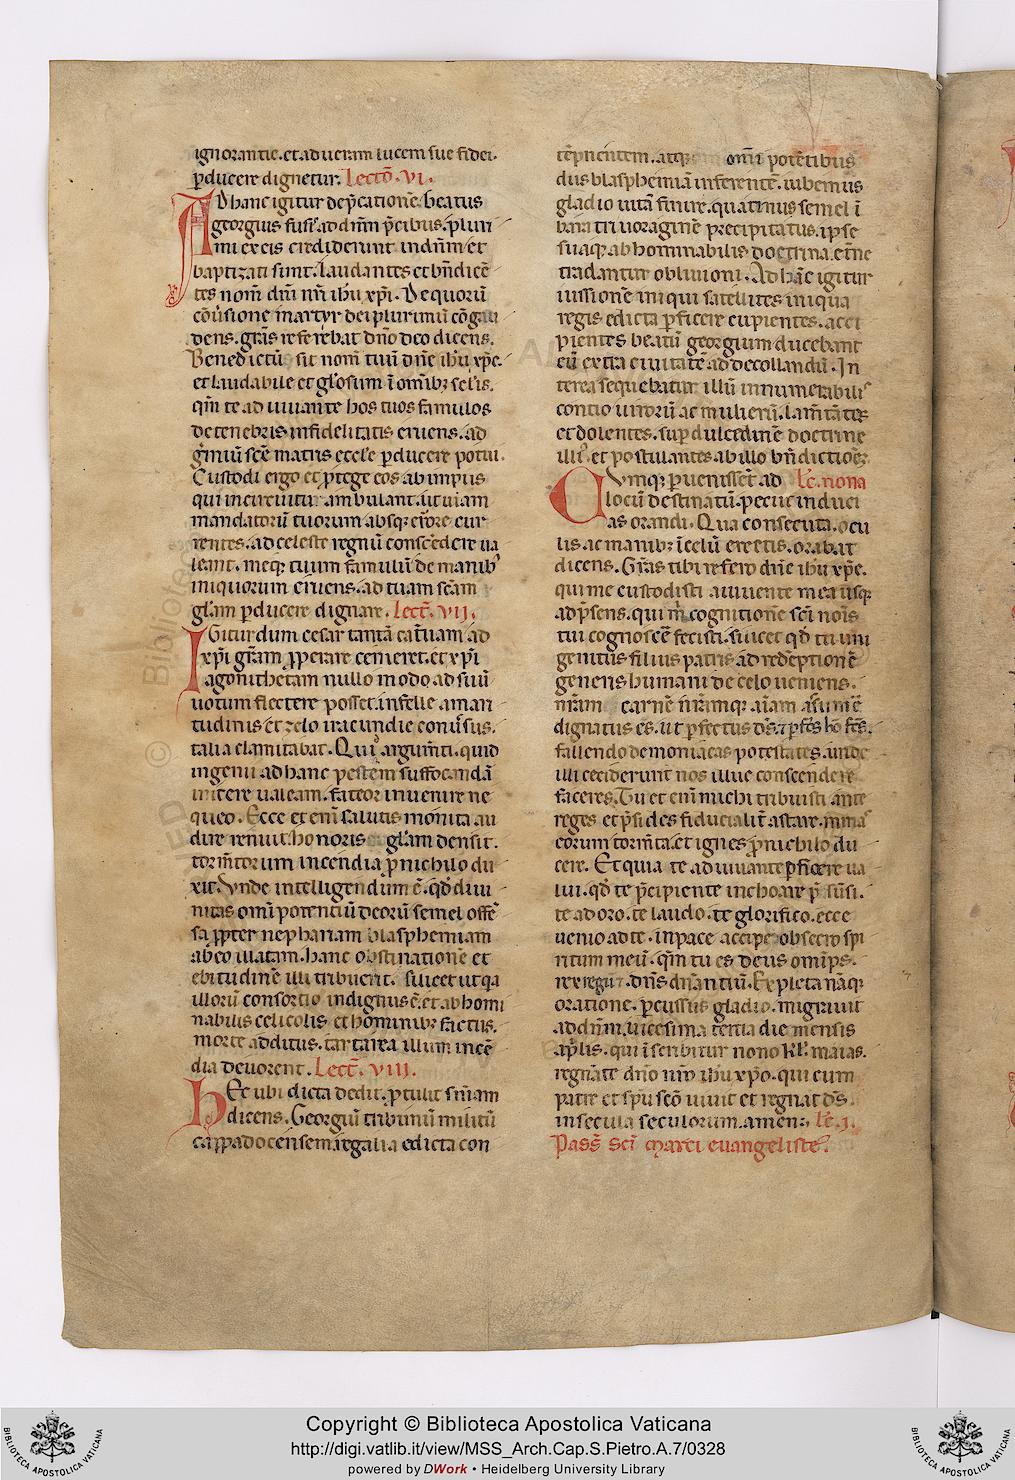 ignorantie. et ad ueram lucem sue fidei.
ꝑducere dignetur. Lectō. vi.
AD hanc igitur dep̄catione. beatus
georgius fusis ad dn̄m p̄cibus. pluri
mi ex eis crediderunt in dn̄m et
baptizati sunt. laudantes et bn̄dicē
tes nom̄ dn̄i nr̄i ih̄u xp̄i. De quorū
cōu̓sione martyr dei plurimū cōgau
dens. gr̄as referebat dn̄o deo dicens.
Benedictū sit nom̄ tuū dn̄e ih̄u xp̄e.
et laudabile et gl̄osum ī om̄ibꝫ sc̄lis.
qm̄ te adiuuante hos tuos famulos
de tenebris infidelitatis eruens. ad
gͥmiū sc̄e matris eccl̄e ꝑducere potui.
Custodi ergo et ꝓtege eos ab impiis
qui in circuitu ambulant. ut uiam
mandatorū tuorum absqꝫ errore cur
rentes. ad celeste regnū consc̄edere ua
leant. meqꝫ tuum famulū de manibꝰ
iniquorum eruens. ad tuam sc̄am
gl̄am ꝑducere dignare. Lect̄. vii.
IGitur dum cesar tantā cat̄uam ad
xp̄i gr̄am ꝓperare cerneret. et xp̄i
agonithetam nullo modo ad suū
uotum flectere posset. in felle amari
tudinis et zelo iracundie conuersus.
talia clamitabat. Quiͩ argum̄ti. quid
ingenii ad hanc pestem suffocandā
mitere ualeam. fateor inuenire ne
queo. Ecce et enī salutis monita au
dire renuit. honoris gl̄am densit.
torm̄torum incendia ꝓ nichilo du
xit. Vnde intelligendum ē. qd̄ diui
nitas om̄ipotentiū deorū semel offē
sa ꝓpter nephariam blasphemiam
ab eo illatam. hanc obstinationē et
ebitudinē illi tribuerit. scilicet ut qͣ
illorū consortio indignus ē. et abhomi
nabilis celicolis et hominibꝫ factus.
morte additus. tartarea illum incē
dia deuorent. Lect̄. viii.
HEc ubi dicta dedit. ꝓtulit sn̄iam
dicens. Georgiū tribunū militū
cappadocensem. regalia edicta con
tēpnentem. atqꝫ om̄ipotētibus
diis blasphemiā inferentē. iubemus
gladio uitā finire. quatinus semel ī
baratri uoraginē precipitatus. ipse
suaqꝫ abhominabilis doctrina. et̄ne
tradantur obliuioni. Ad hāc igitur
iussionē iniqui satellites iniqua
regis edicta ꝑficere cupientes. acci
pientes beatū georgium ducebant
eū extra ciuitatē ad decollandū. In
terea sequebatur illū innumerabilis
concio uirorū ac mulierū. lam̄tātes
et dolentes. suꝑ dulcedinē doctrine
illiꝰ. et postulantes ab illo bn̄dictiōēꝫ.
CVmqꝫ ꝑuenisset ad Lc̄. nona
locū destinatū. peciit induci
as orandi. Qua consecuta. ocu
lis. ac manibꝫ ī celū erectis. orabat
dicens. Gr̄as tibi refero dn̄e ih̄u xp̄e.
qui me custodisti a iuuente mea usqꝫ
ad p̄sens. qui m̄ cognitionē sc̄i noīs
tui cognoscē fecisti. scilicet qd̄ tu uni
genitus filius patris ad redēptionē
generis humani de celo ueniens.
nr̄am carnē nr̄amqꝫ aīam assum̄e
dignatus es. ut ꝑfectus ds̄. et ꝑfc̄s hō fc̄s.
fallendo demoniacas potestates. unde
illi ceciderunt nos illuc conscendere
faceres. Tu et enī michi tribuisti ante
reges et p̄sides fiducialit̄ astare. minas
eorum torm̄ta. et ignes ꝓ nichilo du
cere. Et quia te adiuuante ꝑficere ua
lui. qd̄ te p̄cipiente inchoare p̄sūsi.
te adoro. te laudo. te glorifico. ecce
uenio ad te. in pace accipe obsecro spi
ritum meū. qm̄ tu es deus om̄ips.
rex regū et dn̄s dn̄antiū. Expleta nāqꝫ
oratione. ꝑcussus gladio. migrauit
ad dn̄m. uicesima tertia die mensis
ap̄lis. qui īscribitur nono kl̄. maias.
regnāte dn̄o nr̄o ih̄u xp̄o. qui cum
patre et sp̄u sc̄o uiuit et regnat ds̄.
in secula seculorum. amen. Lc̄. i.
Pass̄. sc̄i marci euangeliste.
Copyright © Biblioteca Apostolica Vaticana
http://digi.vatlib.it/view/MSS_Arch.Cap.S.Pietro.A.7/0328
powered by DWork • Heidelberg University Library
BIBLIOTECA APOSTOLICA VATICANA
BIBLIOTECA APOSTOLICA VATICANA